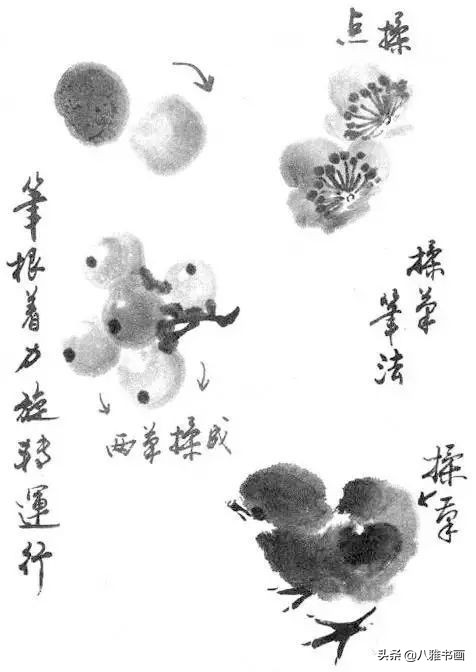 点揉
揉笔
筆法
筆根着力旋轉運行
两笔揉成
揉笔
头条 @八雅书画